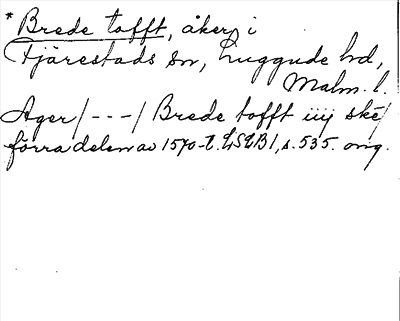 * Brede tofft, åker, i
Fjärestads sn, Luggude hd,
Malm. l.
Ager /---/ Brede tofft iiij ske/
förra delen av 1570-t. LSLB1, s. 535. orig.